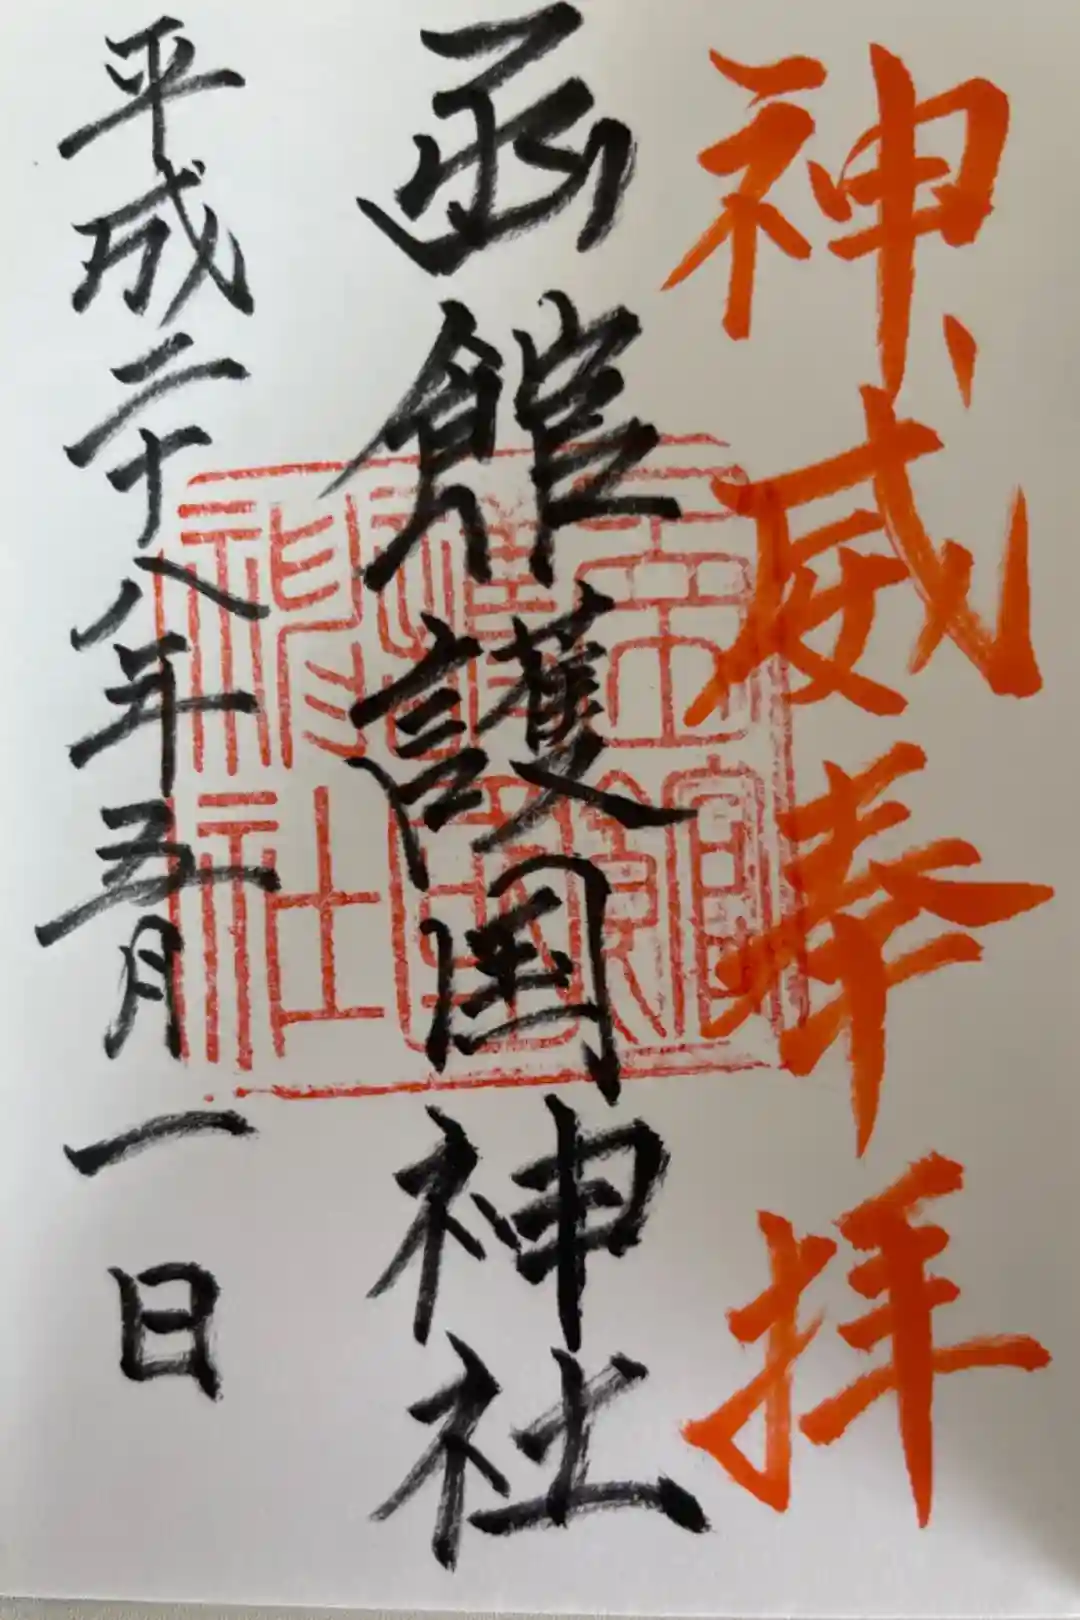 神威奉拝
函館護国神社
平成二十八年五月一日
函館
護国
神社